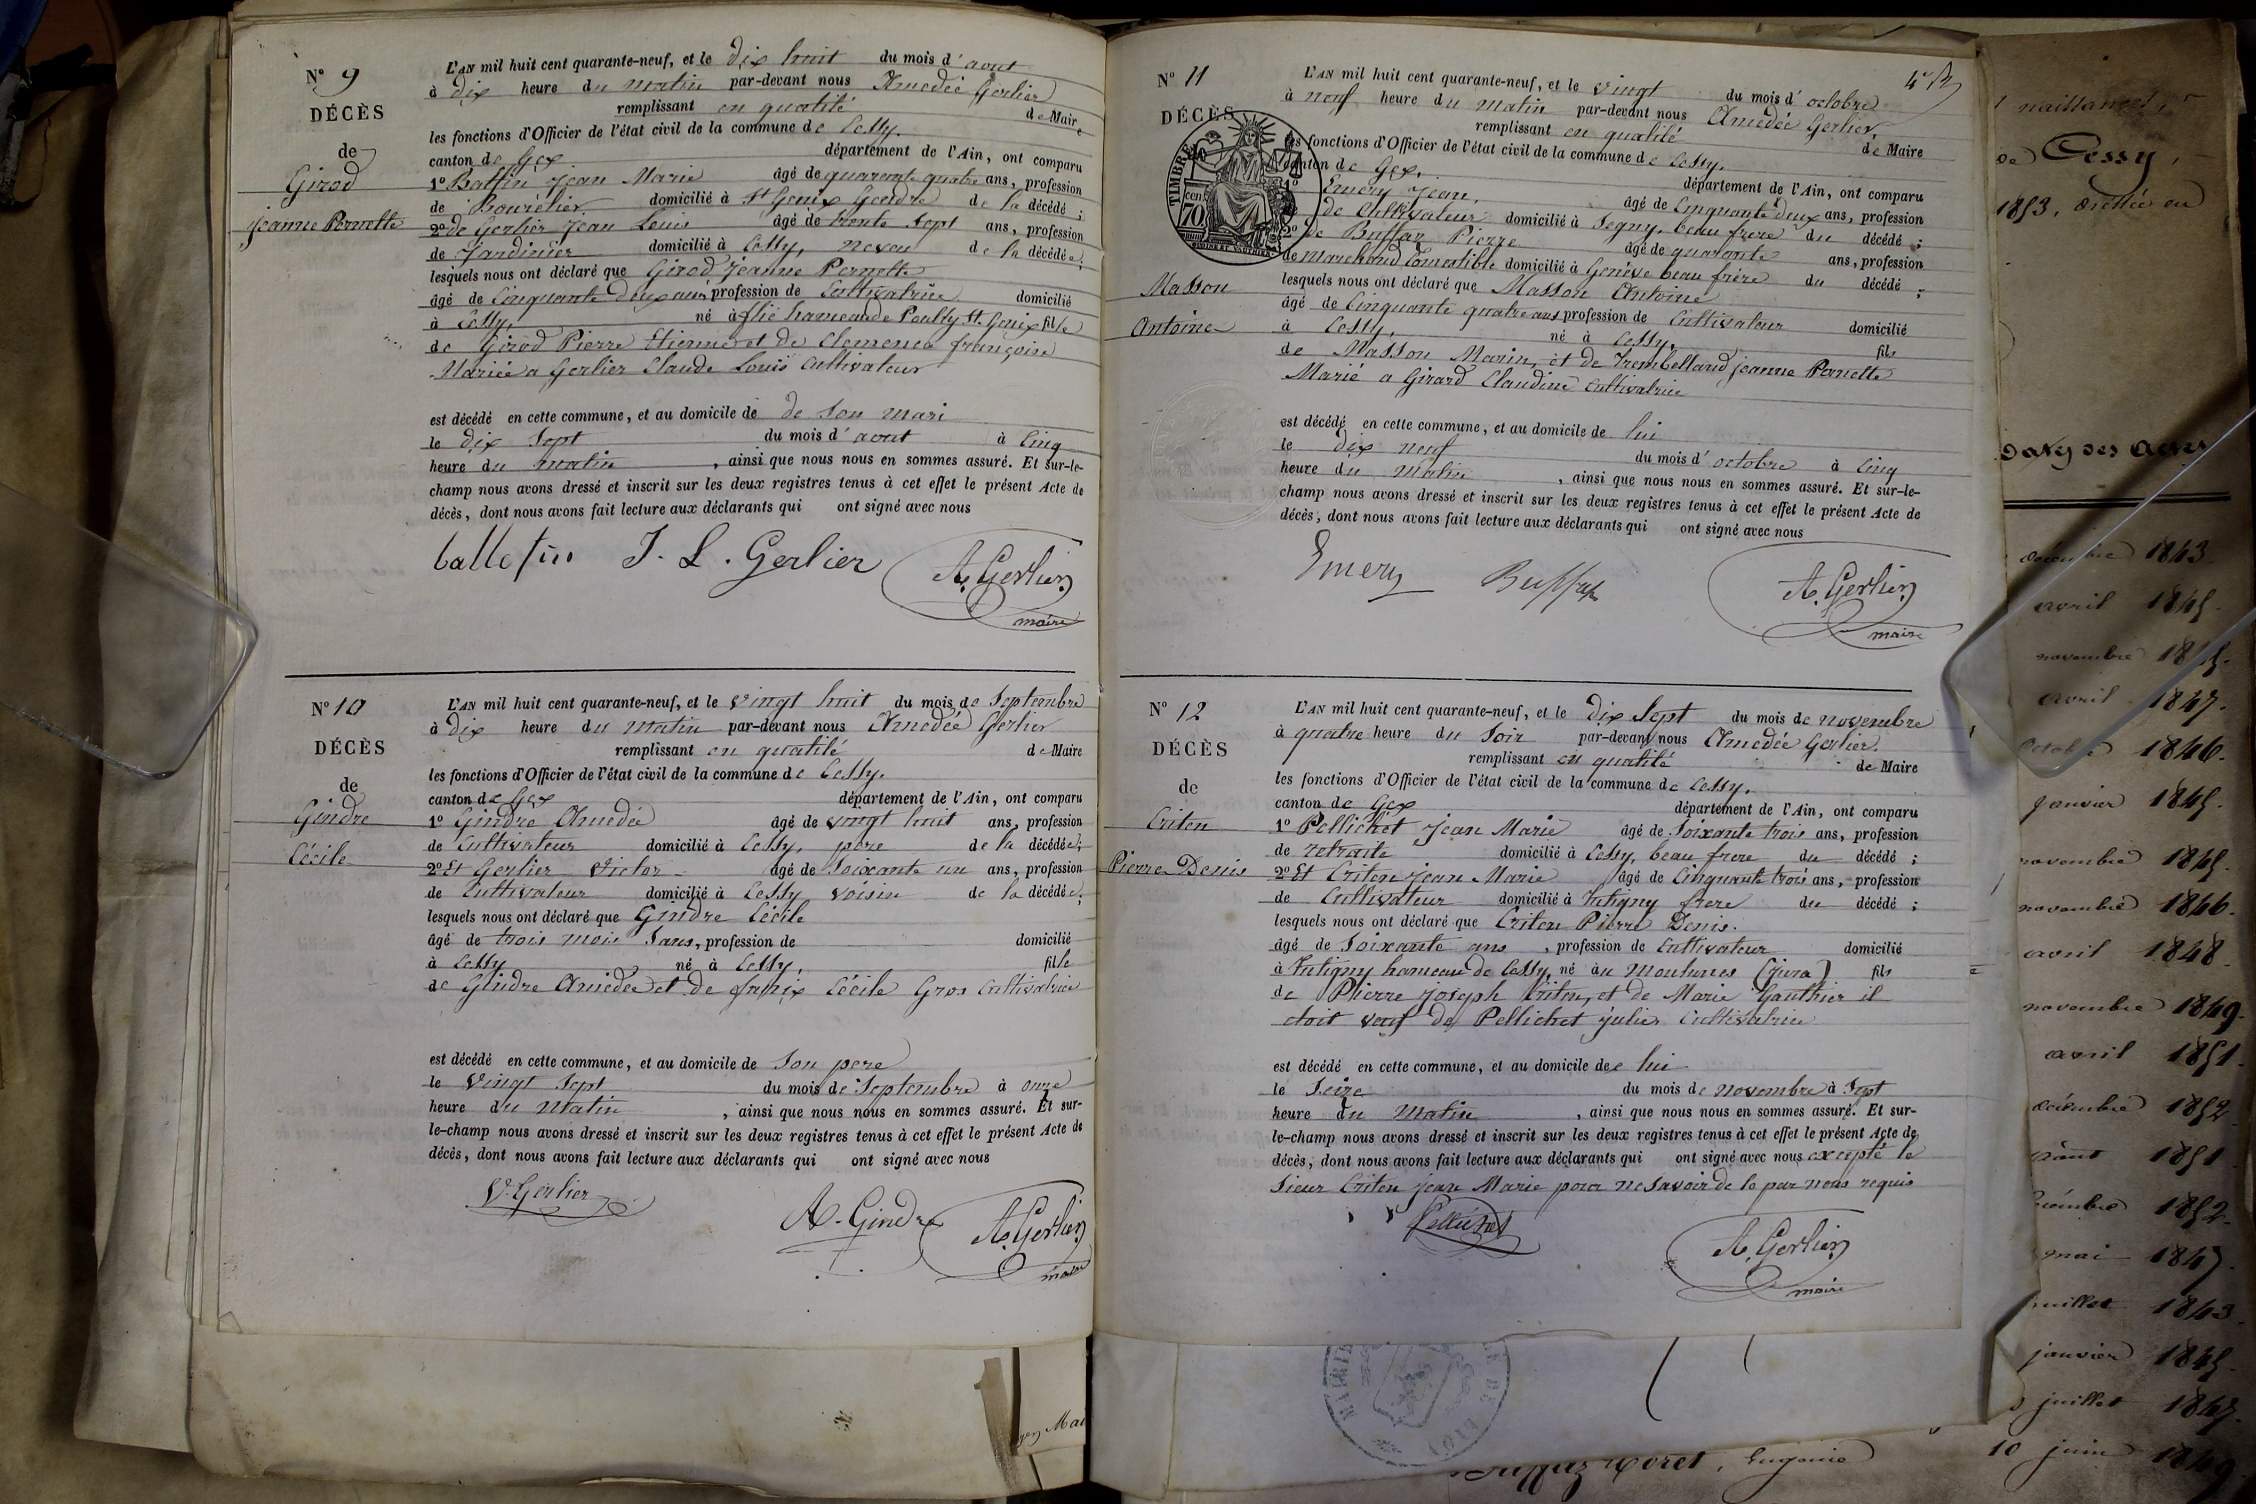 N° 9
DÉCÈS
de
Girod
Jeanne Pernette
L'AN mil huit cent quarante-neuf, et le dix huit du mois d'aout
à dix heure du matin par-devant nous Amedée Gerlier
remplissant en qualité de Maire
les fonctions d'Officier de l'état civil de la commune de Cessy.
canton de Gex département de l'Ain, ont comparu
1° Jean Marie âgé de quarante quatre ans, profession
de Bourelier domicilié à St Genix Gendre de la décédé ;
2° de Gerlier Jean Louis âgé de trente sept ans, profession
de Jardinier domicilié à Cessy, neveu de la décédée ;
lesquels nous ont déclaré que Girod Jeanne Pernette
âgé de Cinquante deux ans, profession de Cultivatrice domicilié
à Cessy, né à hameau de Pouilly St. Genix fille
de Girod Pierre Etienne et de Clemence françoise
Mariée a Gerlier Claude Louis Cultivateur
est décédé en cette commune, et au domicile de de son mari
le dix sept du mois d'aout à Cinq
heure du matin , ainsi que nous nous en sommes assuré. Et sur-le-
champ nous avons dressé et inscrit sur les deux registres tenus à cet effet le présent Acte de
décès, dont nous avons fait lecture aux déclarants qui ont signé avec nous
J. L. Gerlier A. Gerlier
maire
N° 10
DÉCÈS
de
Gindre
Cécile
L'AN mil huit cent quarante-neuf, et le vingt huit du mois de Septembre
à dix heure du matin par-devant nous Amedée Gerlier
remplissant en qualité de Maire
les fonctions d'Officier de l'état civil de la commune de Cessy.
canton de Gex département de l'Ain, ont comparu
1° Gindre Amedée âgé de vingt huit ans, profession
de Cultivateur domicilié à Cessy, pere de la décédée ;
2° Et Gerlier Victor âgé de Soixante un ans, profession
de Cultivateur domicilié à Cessy voisin de la décédée ;
lesquels nous ont déclaré que Gindre Cécile
âgé de trois mois ans, profession de domicilié
à Cessy né à Cessy, fille
de Gindre Amedée et de Cécile Gros Cultivatrice
est décédé en cette commune, et au domicile de son pere
le vingt sept du mois de Septembre à onze
heure du Matin , ainsi que nous nous en sommes assuré. Et sur-
le-champ nous avons dressé et inscrit sur les deux registres tenus à cet effet le présent Acte de
décès, dont nous avons fait lecture aux déclarants qui ont signé avec nous
V. Gerlier
A. Gindre A. Gerlier
maire
N° 11
DÉCÈS
TIMBRE
70 cen
Masson
Antoine
L'AN mil huit cent quarante-neuf, et le vingt du mois d'octobre
à neuf heure du matin par-devant nous Amedée Gerlier,
remplissant en qualité de Maire
les fonctions d'Officier de l'état civil de la commune de Cessy.
canton de Gex. département de l'Ain, ont comparu
1° Emery Jean, âgé de Cinquante deux ans, profession
de Cultivateur domicilié à Segny, beau frere du décédé ;
2° de Buffar Pierre âgé de quarante ans, profession
de Marchand Comestible domicilié à Genève beau frère du décédé ;
lesquels nous ont déclaré que Masson Antoine
âgé de Cinquante quatre ans profession de Cultivateur domicilié
à Cessy, né à Cessy, fils
de Masson Marin, et de Trembelland Jeanne Pernette
Marié a Girard Claudine Cultivatrice
est décédé en cette commune, et au domicile de lui
le dix neuf du mois d'octobre à Cinq
heure du Matin , ainsi que nous nous en sommes assuré. Et sur-le-
champ nous avons dressé et inscrit sur les deux registres tenus à cet effet le présent Acte de
décès, dont nous avons fait lecture aux déclarants qui ont signé avec nous
Emery A. Gerlier
maire
N° 12
DÉCÈS
de
Criten
Pierre Denis
L'AN mil huit cent quarante-neuf, et le dix sept du mois de novembre
à quatre heure du Soir par-devant nous Amedée Gerlier.
remplissant en qualité de Maire
les fonctions d'Officier de l'état civil de la commune de Cessy.
canton de Gex département de l'Ain, ont comparu
1° Pellichet Jean Marie âgé de Soixante trois ans, profession
de retraite domicilié à Cessy, beau frere du décédé ;
2° Et Criten Jean Marie âgé de Cinquante trois ans, profession
de Cultivateur domicilié à Tutigny frere du décédé ;
lesquels nous ont déclaré que Criten Pierre Denis.
âgé de Soixante ans , profession de Cultivateur domicilié
à Tutigny hameau de Cessy, né au Moulunes (jura) fils
de Pierre joseph Criten, et de Marie Gauthier il
etoit veuf de Pellichet julie Cultivatrice
est décédé en cette commune, et au domicile de lui
le Seize du mois de novembre à Sept
heure du Matin , ainsi que nous nous en sommes assuré. Et sur-
le-champ nous avons dressé et inscrit sur les deux registres tenus à cet effet le présent Acte de
décès, dont nous avons fait lecture aux déclarants qui ont signé avec nous excepté le
Sieur Criten Jean Marie pour ne savoir de le par nous requis
Pellichet
A. Gerlier
maire
naissances
de Cessy,
1853,
actes
1843
avril 1845.
novembre
avril 1847.
1846.
janvier 1845.
novembre 1845.
novembre 1846.
avril 1848.
novembre 1849.
avril 1851.
décembre 1852
août 1851
1852.
mai 1847.
juillet 1843.
janvier 1845.
juillet 1847.
10 juin 1849
Eugenie